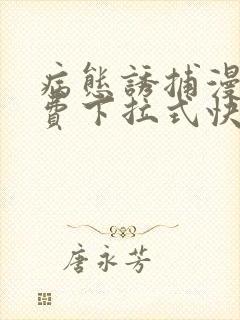 病態誘捕漫
費下拉式快
唐永芳